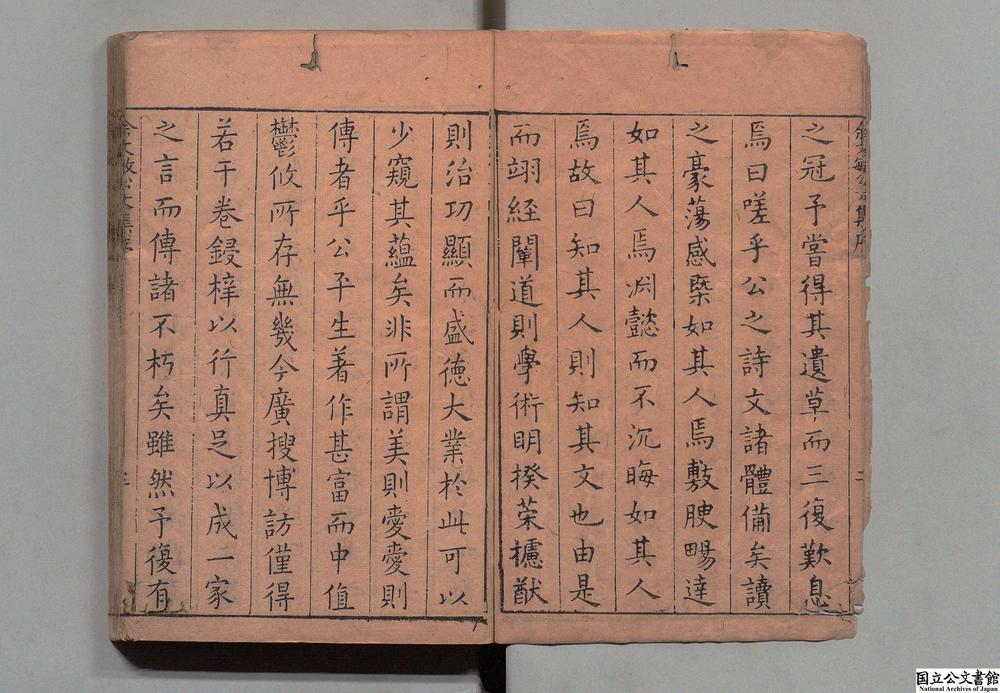 之冠予嘗得其遺草而三復歎息
焉曰嗟乎公之詩文諸體備矣讀
之豪蕩感槩如其人焉敷腴暢達
如其人焉渊懿而不沉晦如其人
焉故曰知其人則知其文也由是
而翊経闡道則學術明揆策攄猷
則治功顯而盛徳大業於此可以
少窺其蘊矣非所謂美則愛愛則
傳者乎公平生著作甚富而中值
鬱攸所存無幾今廣搜博訪僅得
若干卷鋟梓以行真足以成一家
之言而傳諸不朽矣雖然予復有
国立公文書館
National Archives of Japan